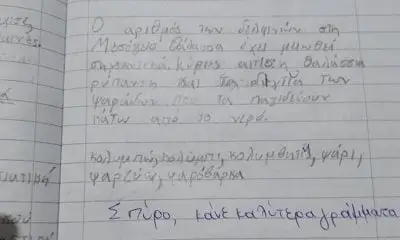 Ο αριθμός των δελφινιών στη
Μεσόγειο θάλασσα έχει μειωθεί
σημαντικά κύριες αιτίες η θαλάσσια
ρύπανση και τα δίχτυα των
ψαράδων που τα παγιδεύουν
κάτω από το νερό.
κολυμπώ, κολύμπι, κολυμβητής, ψάρι,
ψαρεύω, ψαρόβαρκα
Σπύρο, κάνε καλύτερα γράμματα